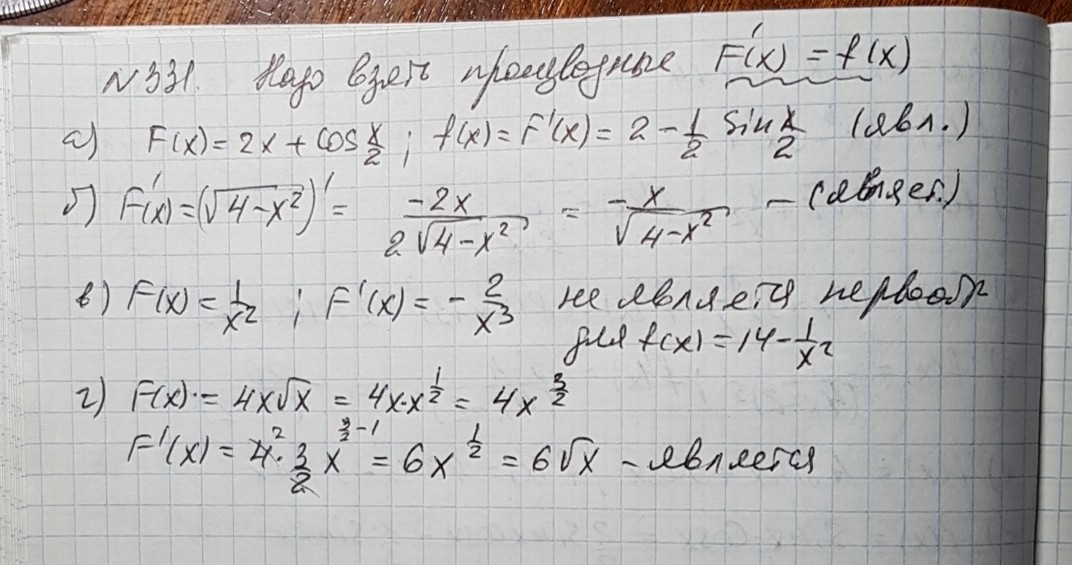 N 331. Надо взять производные F'(x) = f(x)
а) F(x) = 2x + cos x/2 ; f(x) = F'(x) = 2 - 1/2 sin x/2 (явл.)
б) F'(x) = (√4-x²)' = -2x/2√4-x² = -x/√4-x² - (являет.)
в) F(x) = 1/x² ; F'(x) = - 2/x³ не является первообр
для f(x) = 14 - 1/x²
г) F(x) = 4x√x = 4x·x^1/2 = 4x^3/2
F'(x) = 4² · 3/2 x^3/2-1 = 6x^1/2 = 6√x - является